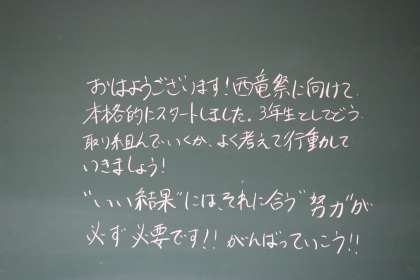 おはようございます！西竜祭に向けて
本格的にスタートしました。3年生としてどう
取り組んでいくか、よく考えて行動して
いきましょう！
“いい結果”には、それに合う“努力”が
必ず必要です！！がんばっていこう！！